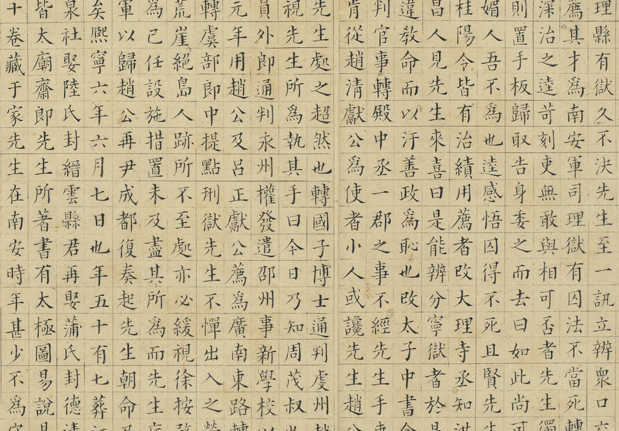 理縣有獄久不決先生至一訊立辨衆口
薦其才為南安軍司理獄有囚法不當死轉
深治之逵苛刻吏無敢與相可否者先生獨
則置手板歸取告身委之而去曰如此尚可
媚人吾不為也逵感悟囚得不死且賢先生
桂陽令皆有治績用薦者改大理寺丞知洪
昌人見先生來喜曰是能辨分寧獄者於是
違教命而以汙善政為恥也改太子中書
判官事轉殿中丞一郡之事不經先生手
肯從趙清獻公為使者小人或讒先生趙公
先生處之超然也轉國子博士通判虔州趙
視先生所為執其手曰今日乃知周茂叔也
員外郎通判永州權發遣邵州事新學校以
元年用趙公及呂正獻公薦為廣南東路轉
轉虞部郎中提點刑獄先生不憚出入之勞
荒崖絕島人跡所不至處亦必緩視徐按
為己任設施措置未及盡其所為而先生
軍以歸趙公再尹成都復奏起先生朝命及
矣熙寧六年六月七日也年五十有七葬江
泉社娶陸氏封縉雲縣君再娶蒲氏封德清
皆太廟齋郎先生所著書有太極圖易說
十卷藏于家先生在南安時年甚少不為守